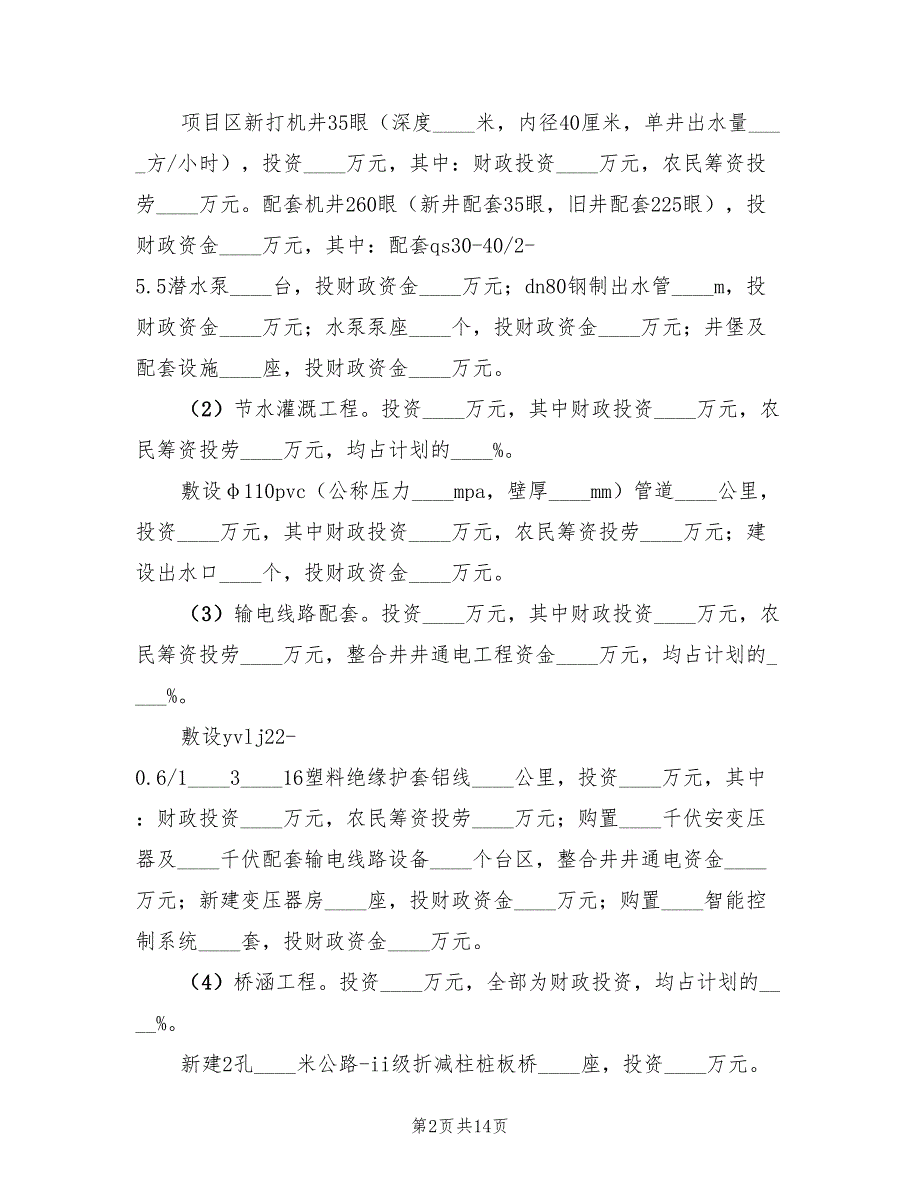 项目区新打机井35眼（深度____米，内径40厘米，单井出水量___
_方/小时），投资____万元，其中：财政投资____万元，农民筹资投
劳____万元。配套机井260眼（新井配套35眼，旧井配套225眼），投
财政资金____万元，其中：配套qs30-40/2-
5.5潜水泵____台，投财政资金____万元；dn80钢制出水管____m，投
财政资金____万元；水泵泵座____个，投财政资金____万元；井堡及
配套设施____座，投财政资金____万元。
（2）节水灌溉工程。投资____万元，其中财政投资____万元，农
民筹资投劳____万元，均占计划的____%。
敷设φ110pvc（公称压力____mpa，壁厚____mm）管道____公里，
投资____万元，其中财政投资____万元，农民筹资投劳____万元；建
设出水口____个，投财政资金____万元。
（3）输电线路配套。投资____万元，其中财政投资____万元，农
民筹资投劳____万元，整合井井通电工程资金____万元，均占计划的_
___%。
敷设yvlj22-
0.6/1____3____16塑料绝缘护套铝线____公里，投资____万元，其中
：财政投资____万元，农民筹资投劳____万元；购置____千伏安变压
器及____千伏配套输电线路设备____个台区，整合井井通电资金____
万元；新建变压器房____座，投财政资金____万元；购置____智能控
制系统____套，投财政资金____万元。
（4）桥涵工程。投资____万元，全部为财政投资，均占计划的__
__%。
新建2孔____米公路-ii级折减柱桩板桥____座，投资____万元。
第2页共14页